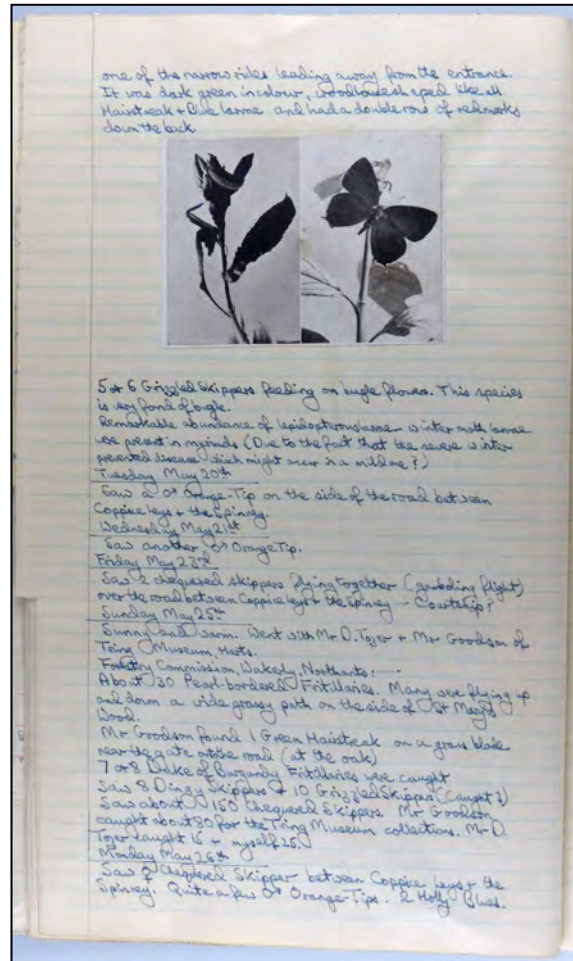 one of the narrow rides leading away from the entrance.
It was dark green in colour, woodlouse shaped like all
Hairstreak + Blue larvae and had a double row of red marks
down the back
5 or 6 Grizzled Skippers feeding on bugle flowers. This species
is very fond of bugle.
Remarkable abundance of lepidopterous larvae winter moth larvae
were present in myriads (Due to the fact that the severe winter
prevented disease which might occur in a mild one?)
Tuesday May 20th
Saw a ♂ Orange-Tip on the side of the road between
Coppice Leys + the Spinney.
Wednesday May 21st
Saw another ♂ Orange Tip.
Friday May 23rd
Saw 2 chequered skippers flying together ( flight)
over the road between Coppice Leys + the Spinney — Courtship?
Sunday May 25th
Sunny and warm. Went with Mr D. Tozer + Mr Goodson of
Tring Museum, Herts.
Forestry Commission, Wakerly, Northants: —
About 30 Pearl-bordered Fritillaries. Many were flying up
and down a wide grassy path on the side of St Mary's
Wood.
Mr Goodson found 1 Green Hairstreak on a grass blade
near the gate onto the road (at the oak)
7 or 8 Duke of Burgundy Fritillaries were caught
Saw 8 Dingy Skippers + 10 Grizzled Skipper (Caught 3)
Saw about 150 Chequered Skippers. Mr Goodson
caught about 80 for the Tring Museum collections. Mr D.
Tozer caught 15 + myself 25.
Monday May 26th
Saw ♀ Chequered Skipper between Coppice Leys + the
Spinney. Quite a few ♂ Orange-Tips. 2 Holly Blues.